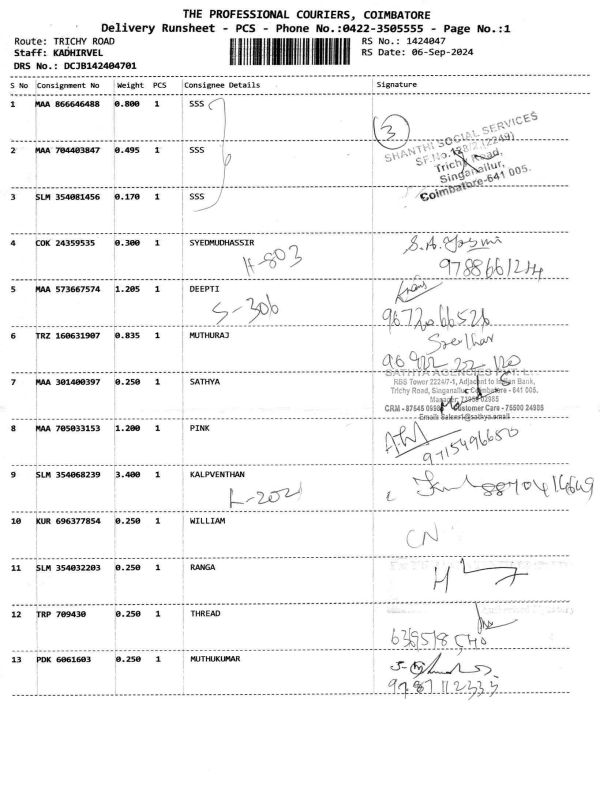 THE PROFESSIONAL COURIERS, COIMBATORE
Delivery Runsheet - PCS - Phone No.:0422-3505555 - Page No.:1
Route: TRICHY ROAD RS No.: 1424047
Staff: KADHIRVEL RS Date: 06-Sep-2024
DRS No.: DCJB142404701
S No Consignment No Weight PCS Consignee Details Signature
1 MAA 866646488 0.800 1 SSS
3
SHANTHI SOCIAL SERVICES
2 MAA 704403847 0.495 1 SSS
Trichy Road,
Singanallur,
Coimbatore-641 005.
3 SLM 354081456 0.170 1 SSS
4 COK 24359535 0.300 1 SYEDMUDHASSIR
H-803
5 MAA 573667574 1.205 1 DEEPTI
S-306
6 TRZ 160631907 0.835 1 MUTHURAJ
7 MAA 301400397 0.250 1 SATHYA
SATHYA AGENCIES
RBS Tower 2224/7-1, Adjacent to Indian Bank,
Trichy Road, Singanallur, Coimbatore - 641 005.
Customer Care - 75500 24905
8 MAA 705033153 1.200 1 PINK
9715496650
9 SLM 354068239 3.400 1 KALPVENTHAN
L-202
10 KUR 696377854 0.250 1 WILLIAM
CN
11 SLM 354032203 0.250 1 RANGA
12 TRP 709430 0.250 1 THREAD
13 PDK 6061603 0.250 1 MUTHUKUMAR